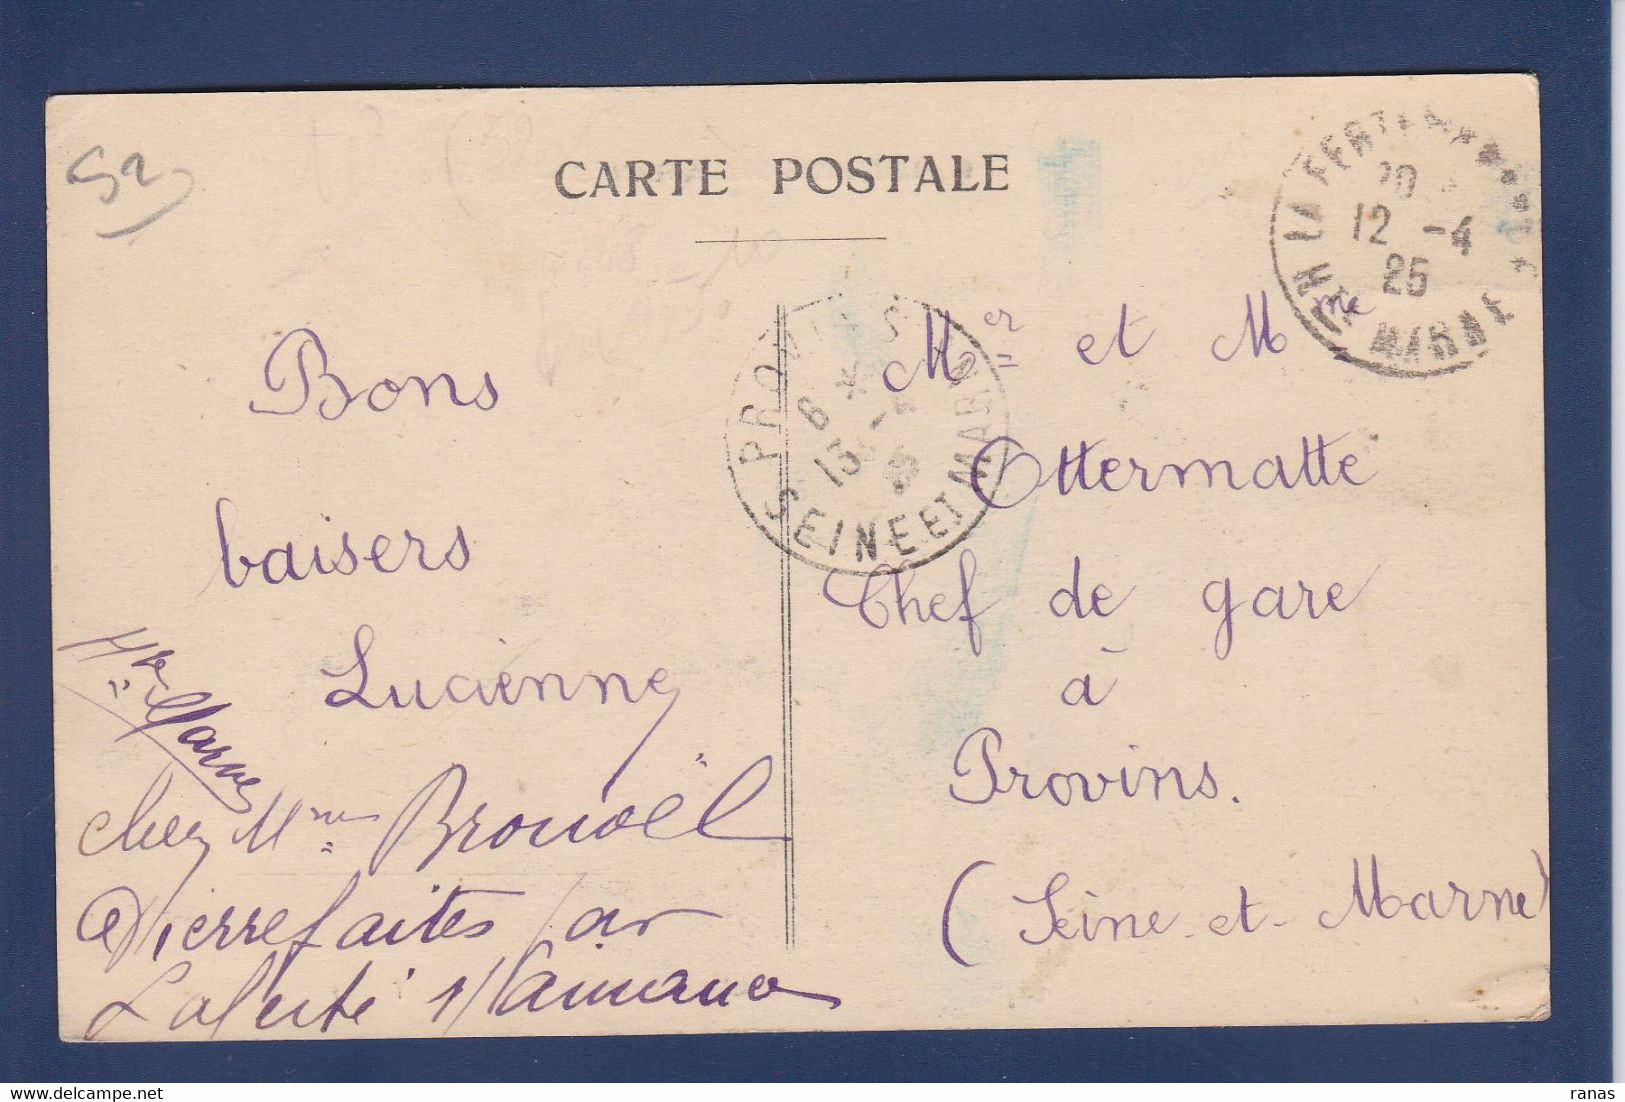 52
CARTE POSTALE
LA FERTÉ
Hte MARNE
12 -4
25
PROVINS
SEINE ET MARNE
6 *
13
Bons
baisers
Lucienne
Hte Marne
chez Mme Brouoël
Pierrefaites par
Laferté s/
Mer et Mme
Ottermatte
Chef de gare
à
Provins.
(Seine-et-Marne)
ranas